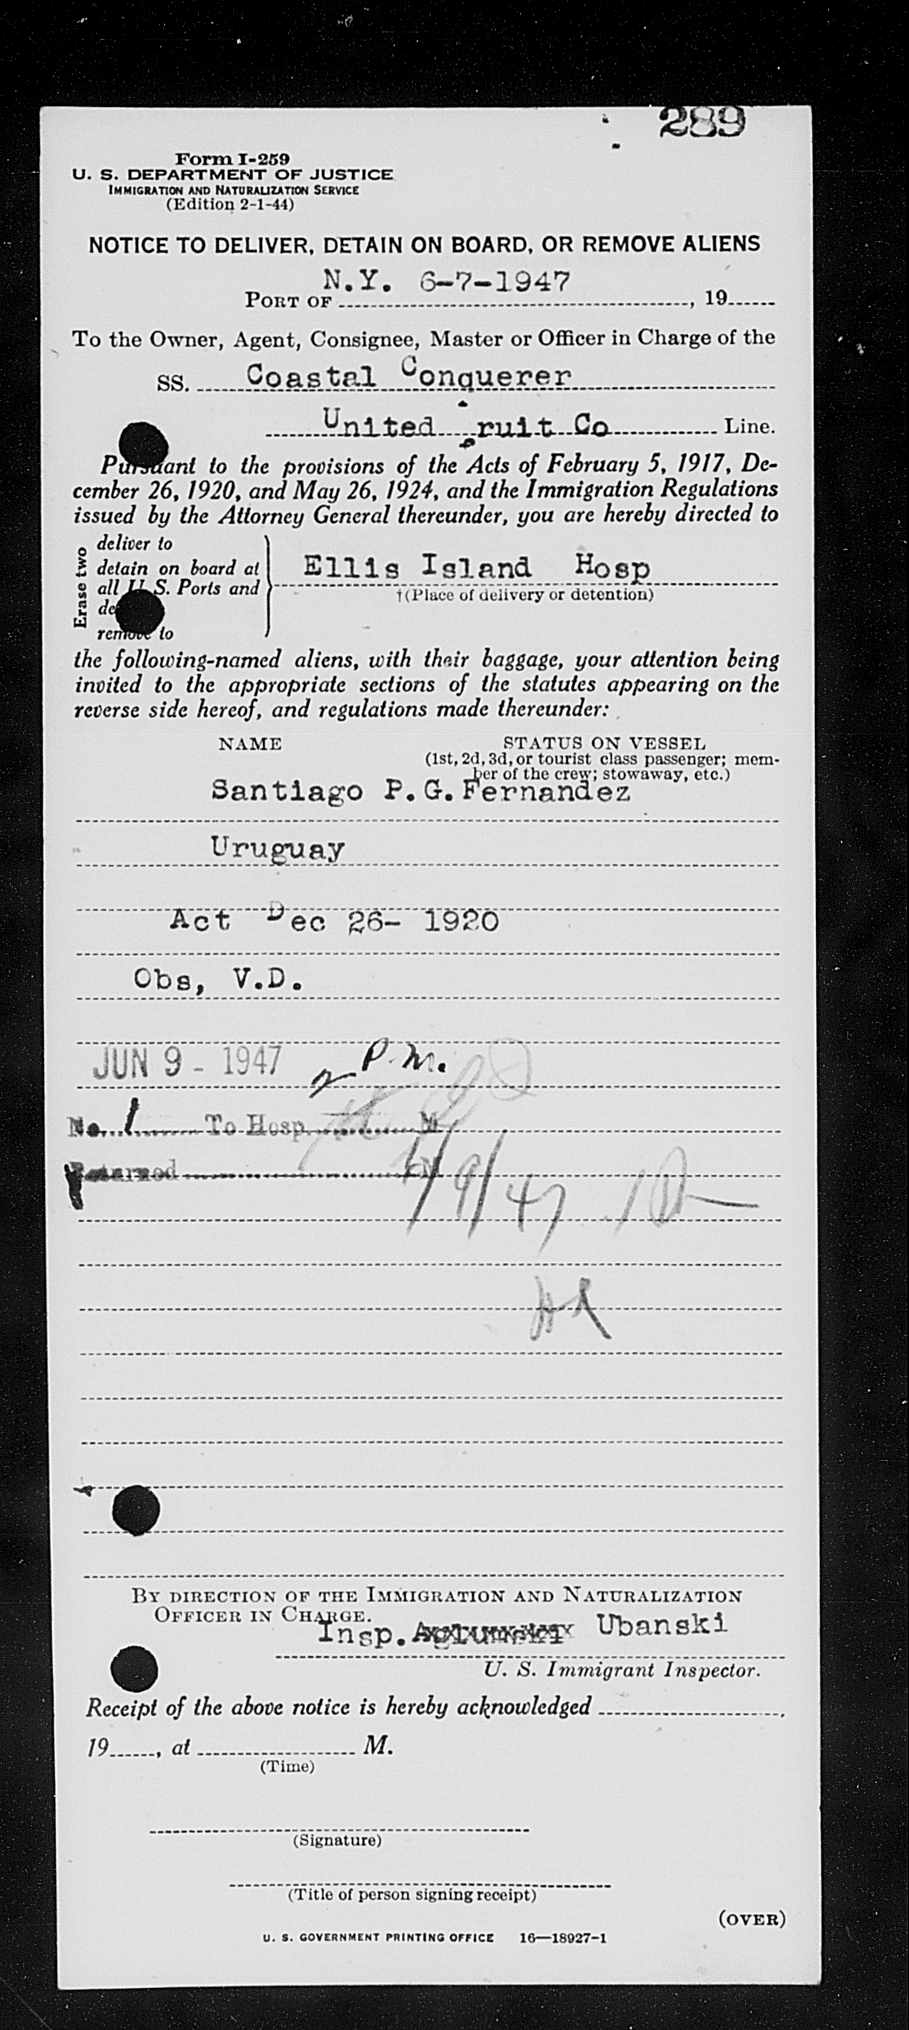 289
Form I-259
U. S. DEPARTMENT OF JUSTICE
IMMIGRATION AND NATURALIZATION SERVICE
(Edition 2-1-44)
NOTICE TO DELIVER, DETAIN ON BOARD, OR REMOVE ALIENS
N.Y. 6-7-1947
PORT OF , 19
To the Owner, Agent, Consignee, Master or Officer in Charge of the
SS. Coastal Conquerer
United Fruit Co Line.
Pursuant to the provisions of the Acts of February 5, 1917, De-
cember 26, 1920, and May 26, 1924, and the Immigration Regulations
issued by the Attorney General thereunder, you are hereby directed to
Erase two
deliver to
detain on board at
all U. S. Ports and
remove to
Ellis Island Hosp
†(Place of delivery or detention)
the following-named aliens, with their baggage, your attention being
invited to the appropriate sections of the statutes appearing on the
reverse side hereof, and regulations made thereunder:
NAME STATUS ON VESSEL
(1st, 2d, 3d, or tourist class passenger; mem-
ber of the crew; stowaway, etc.)
Santiago P.G.Fernandez
Uruguay
Act Dec 26- 1920
Obs, V.D.
JUN 9 - 1947 2 P.M.
No. 1 To Hosp. M
Returned M
/9/47
By direction of the Immigration and Naturalization
Officer in Charge.
Insp. Ubanski
U. S. Immigrant Inspector.
Receipt of the above notice is hereby acknowledged ,
19 , at M.
(Time)
(Signature)
(Title of person signing receipt)
(OVER)
U. S. GOVERNMENT PRINTING OFFICE 16—18927-1